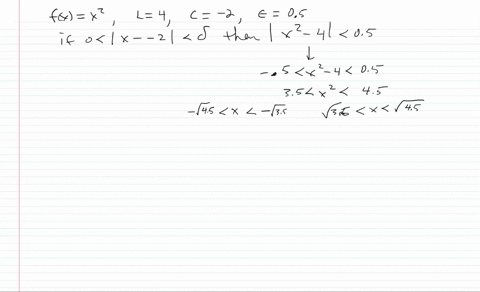 f(x) = x², L = 4, C = -2, E = 0.5
if 0 < |x - -2| < δ then |x² - 4| < 0.5
↓
-.5 < x² - 4 < 0.5
3.5 < x² < 4.5
-√4.5 < x < -√3.5 √3.5 < x < √4.5